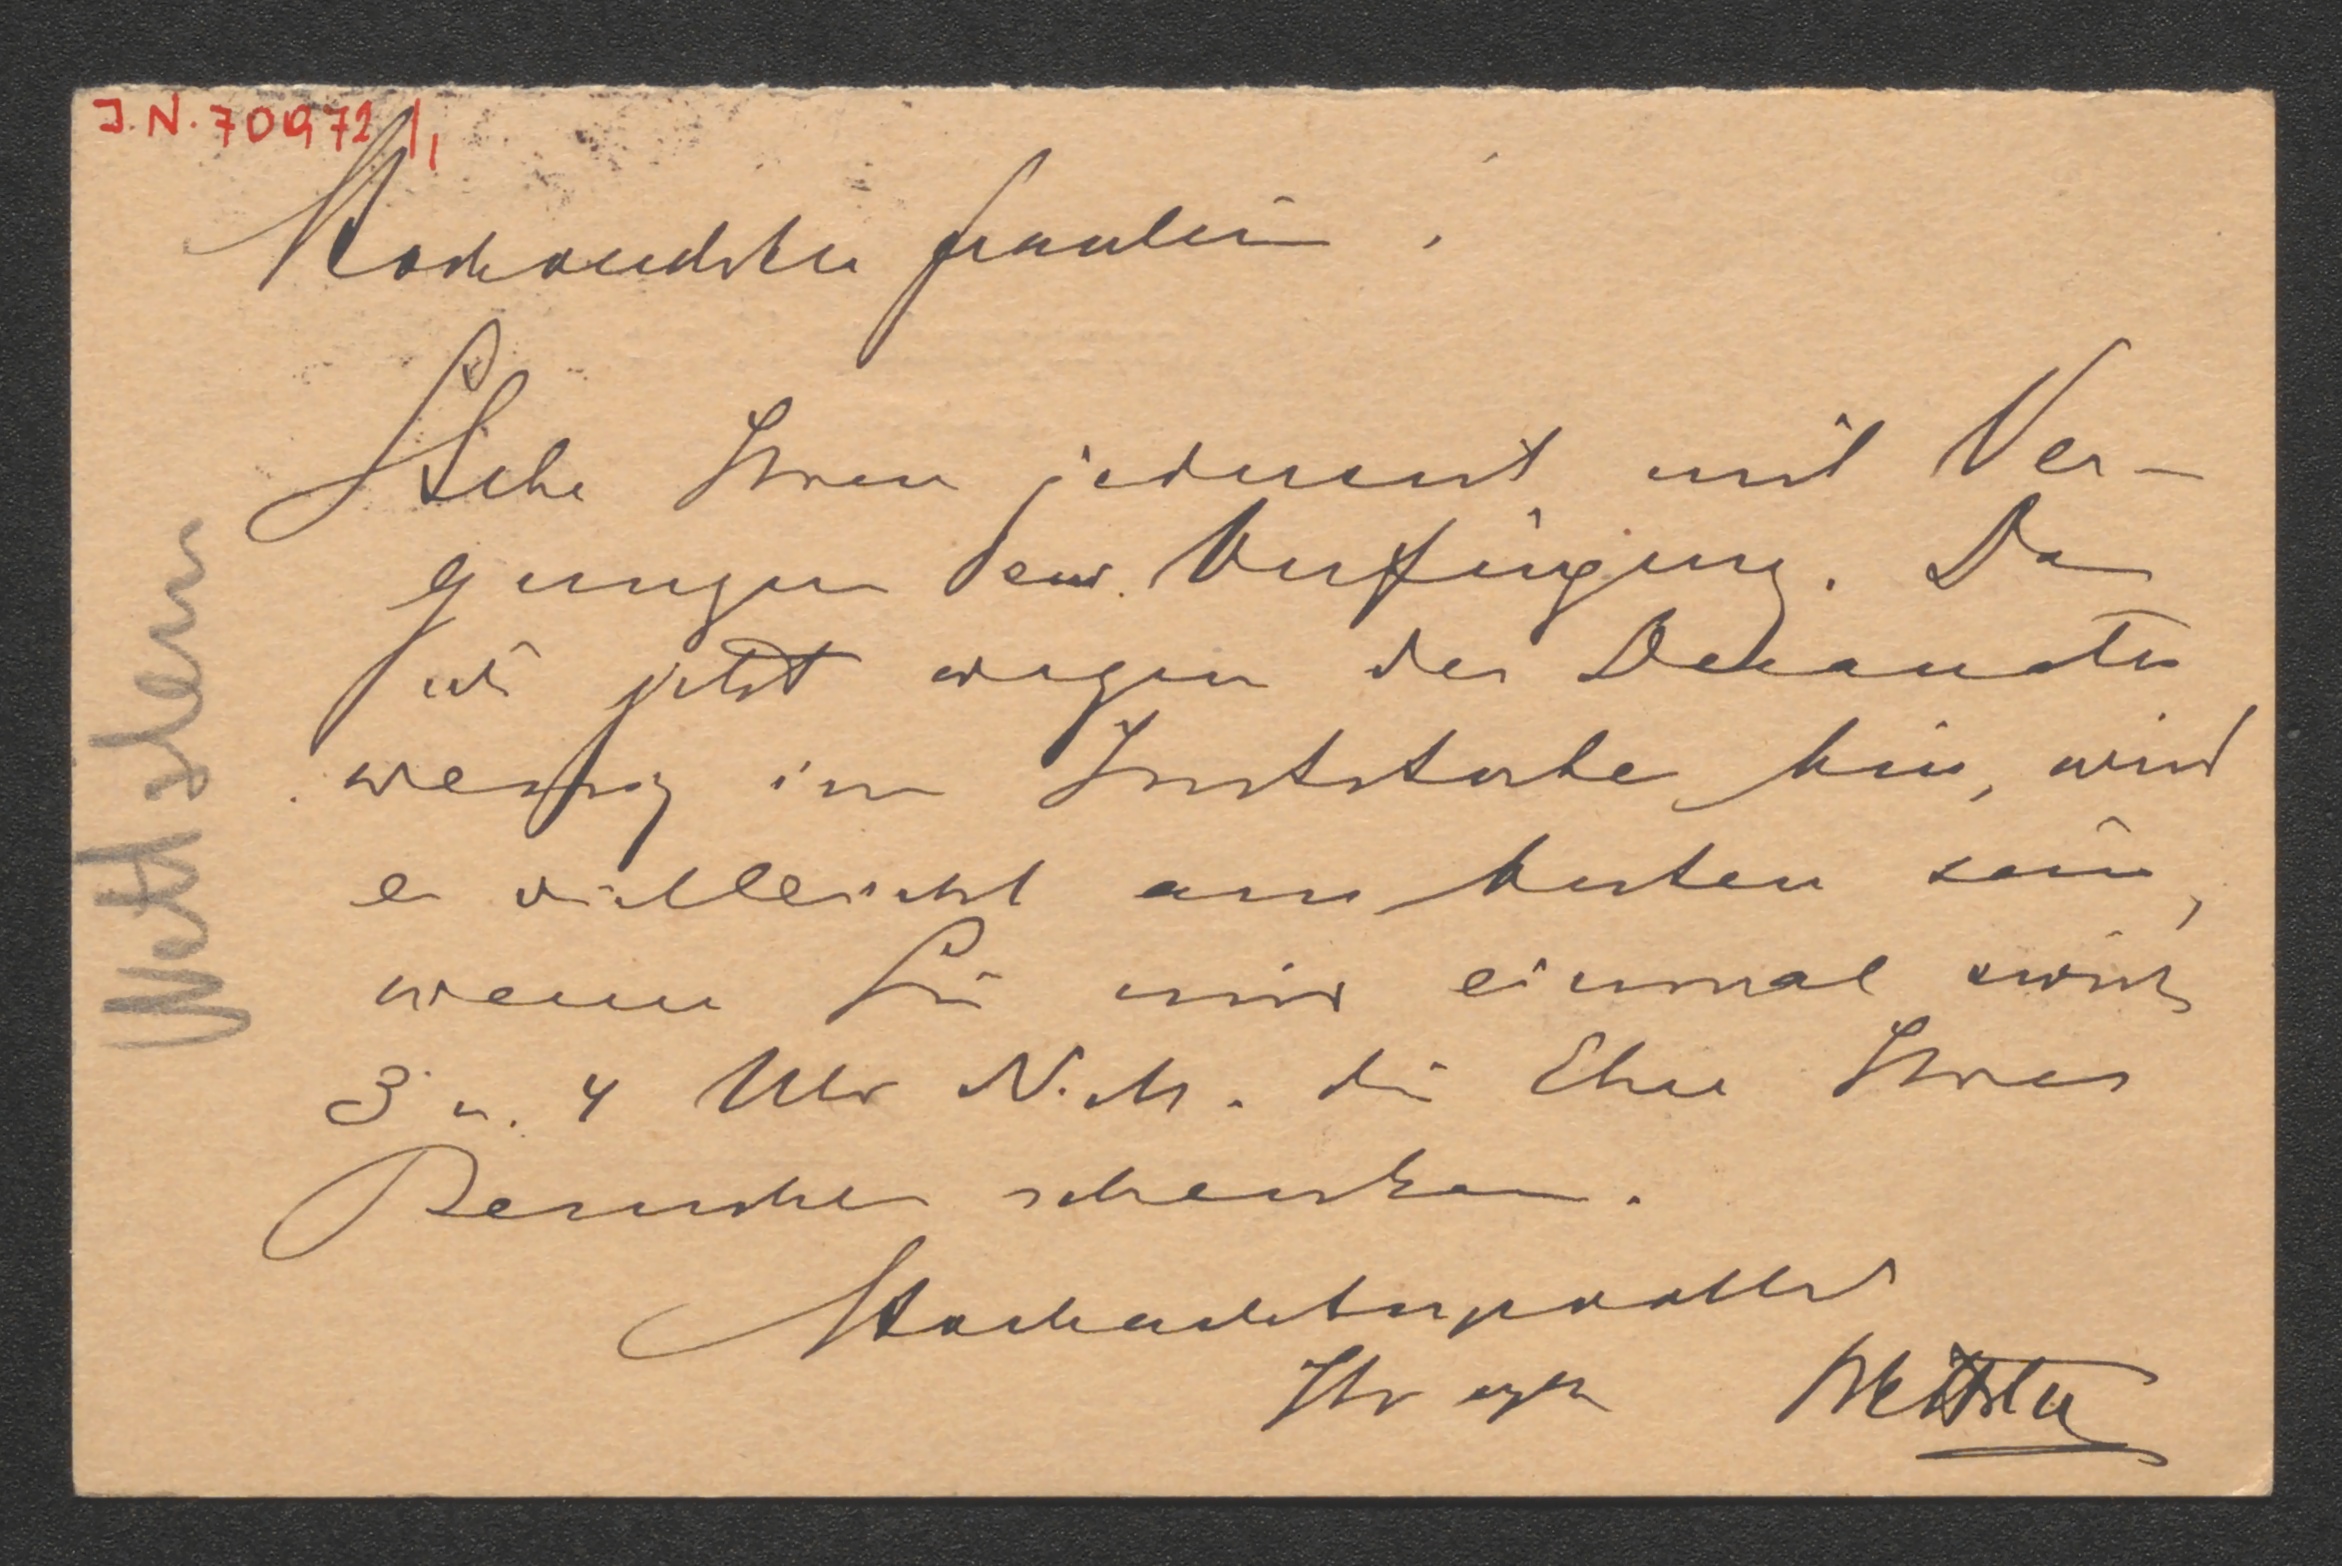 J.N. 70972/1
Hochverehrtes Fräulein!
Stehe Ihnen jederzeit mit Ver-
gnügen zur Verfügung. Da
ich jetzt wegen des Dekanates
wenig im Institute bin, wird
es vielleicht am besten sein,
wenn Sie mir einmal zwisch.
3 u. 4 Uhr N.M. die Ehre Ihres
Besuches schenken.
Hochachtungsvollst
Ihr erg. Wettstein
Wettstein